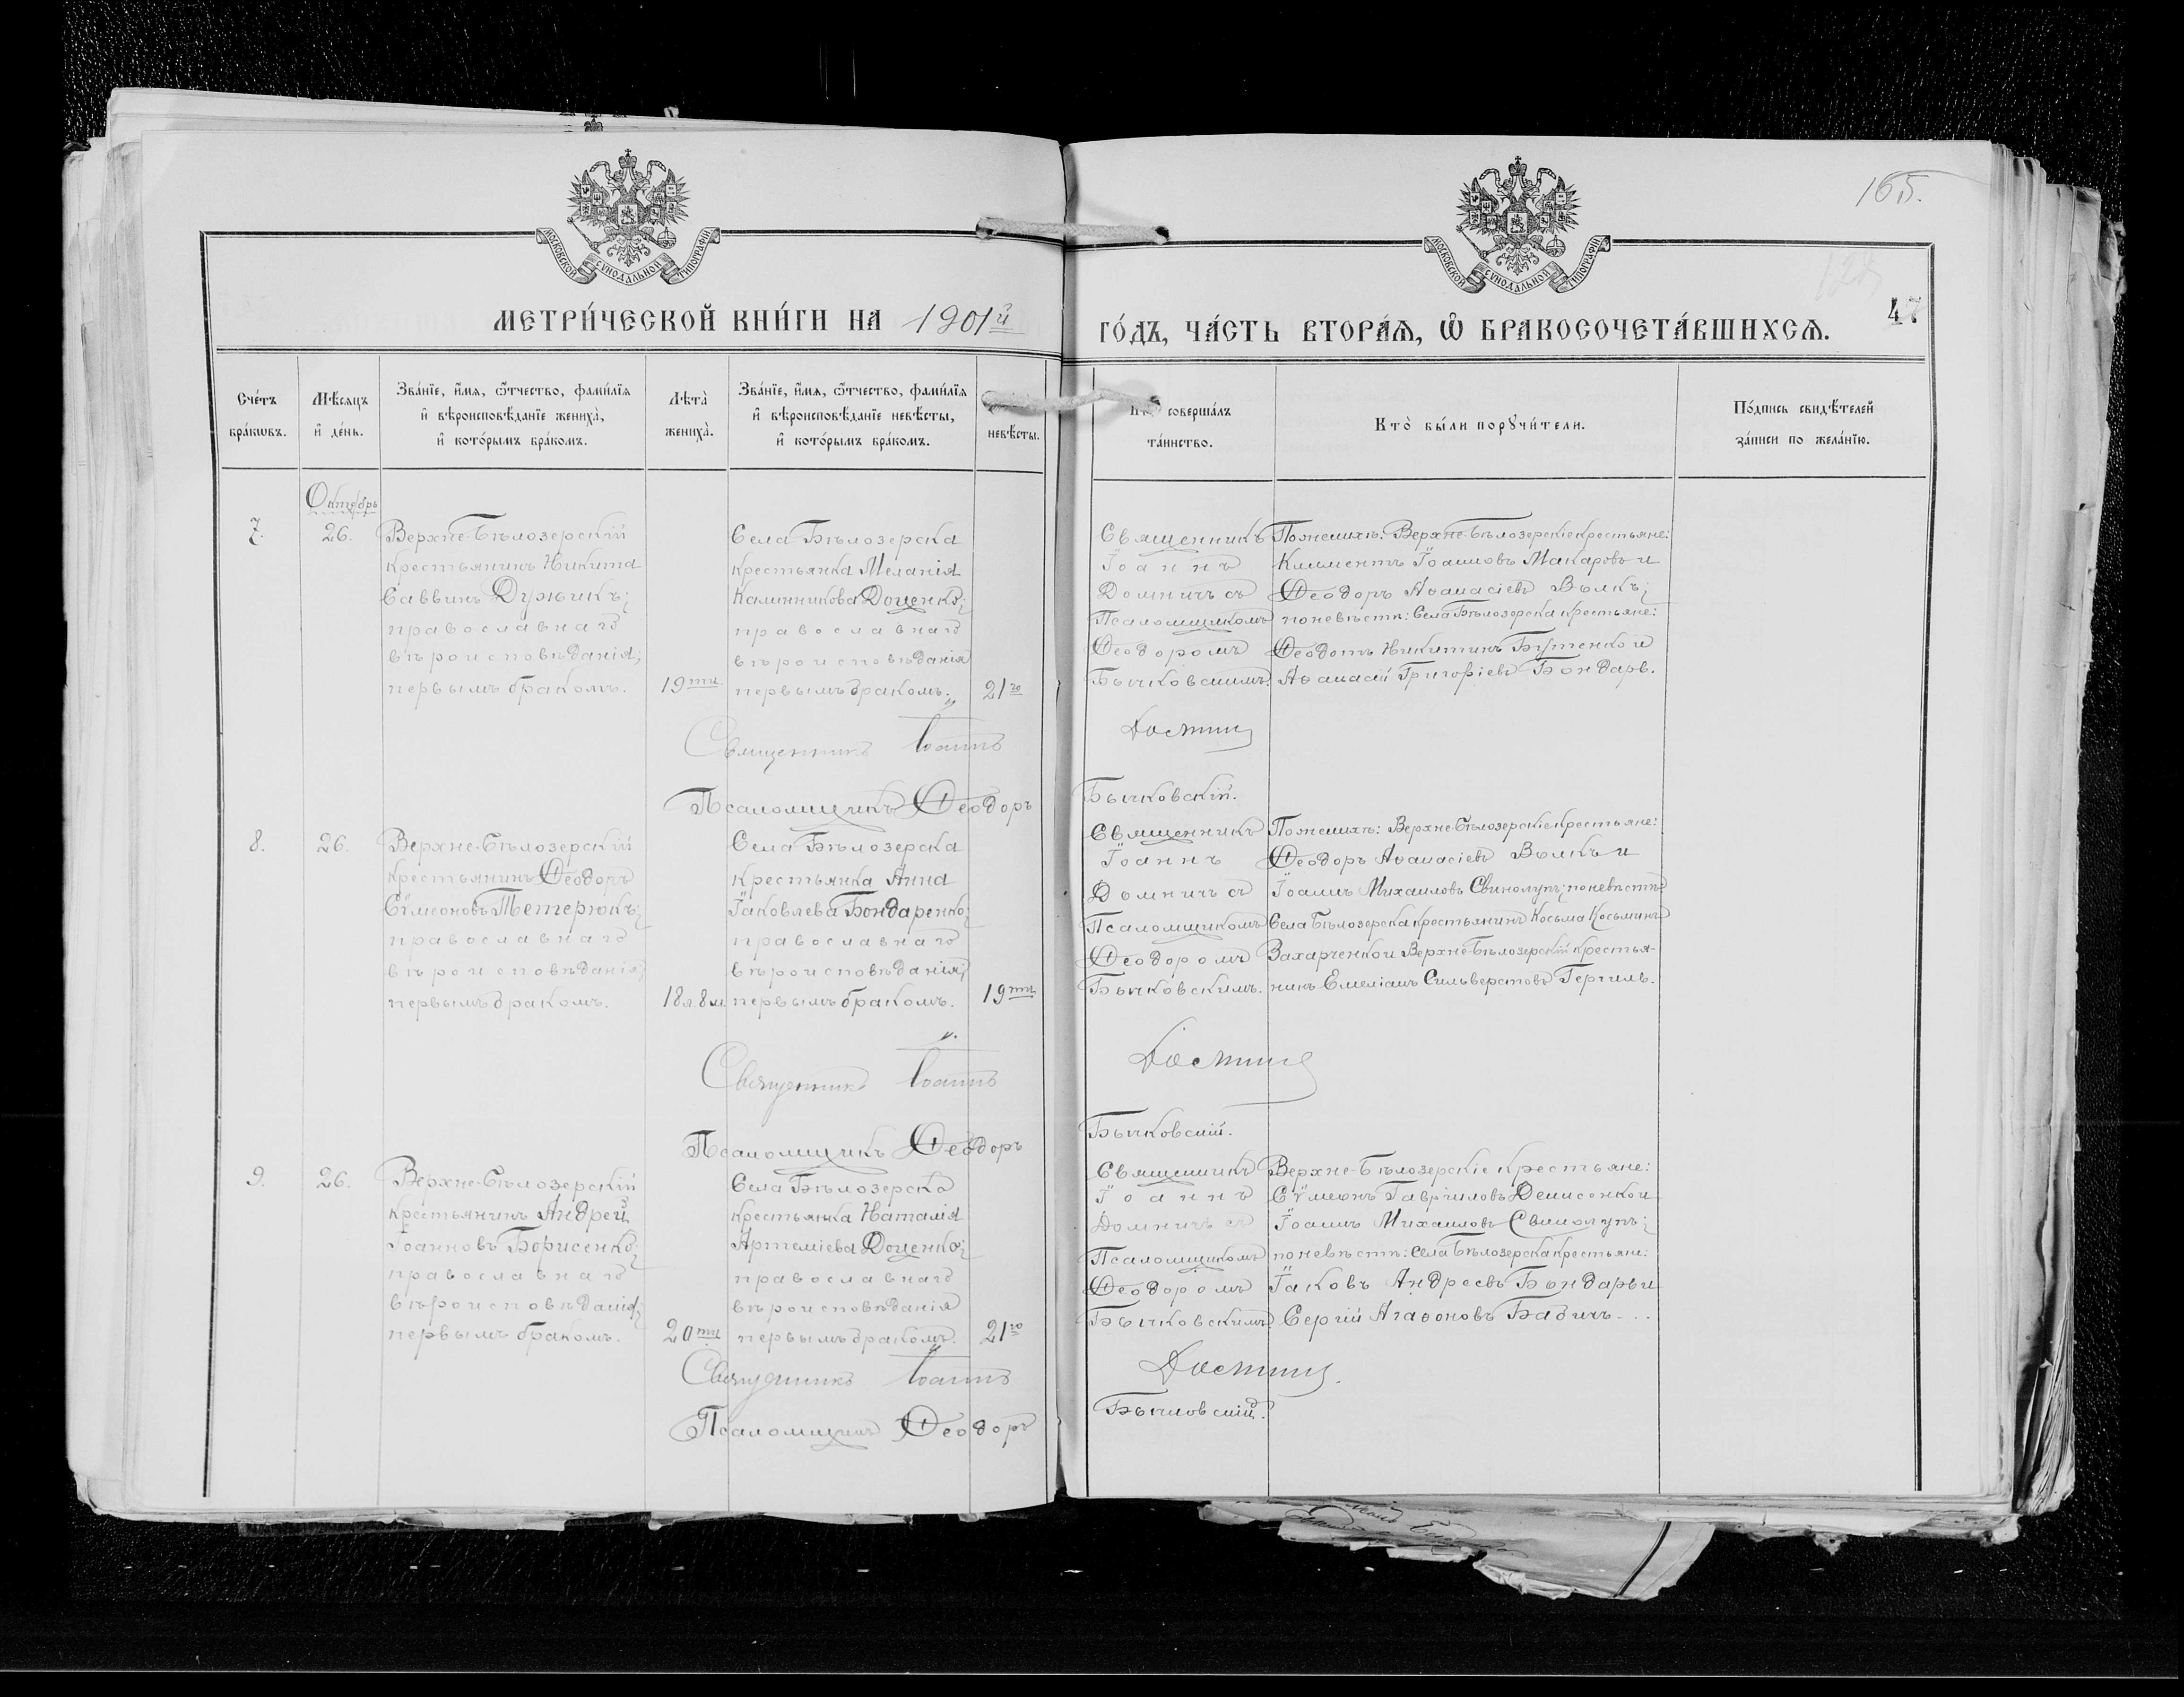 165.
МОСКОВСКОЙ СУНОДАЛЬНОЙ ТИПОГРАФІИ
МОСКОВСКОЙ СУНОДАЛЬНОЙ ТИПОГРАФІИ
МЕТРИ́ЧЕСКОЙ КНИ́ГИ НА 1901й
ГО́ДЪ, ЧА́СТЬ ВТОРА́Я, Ѡ БРАКОСОЧЕТА́ВШИХСЯ.
47
Сче́тъ
бра́кѡвъ.
Мѣ́сяцъ
и де́нь.
Зва́нїе, и́мя, ѻ́тчество, фами́лїя
и вѣроисповѣ́данїе жениха̀,
и кото́рымъ бра́комъ.
Лѣта̀
жениха̀.
Зва́нїе, и́мя, ѻ́тчество, фами́лїя
и вѣроисповѣ́данїе невѣ́сты,
и кото́рымъ бра́комъ.
невѣ́сты.
совершалъ
та́инство.
Кто̀ бы́ли порꙋчи́тели.
По́дпись свидѣ́телей
за́писи по жела́нїю.
Октябрь
7.
26.
Верхне-Бѣлозерскій
крестьянинъ Никита
Саввинъ Дужикъ;
православнаго
вѣроисповѣданія;
первымъ бракомъ.
19ти
Села Бѣлозерска
крестьянка Меланія
Калинникова Доценко;
православнаго
вѣроисповѣданія
первымъ бракомъ.
21го
Священникъ
Іоаннъ
Домничъ съ
Псаломщикомъ
Ѳеодоромъ
Бычковскимъ.
По женихѣ: Верхне-Бѣлозерскіе крестьяне:
Климентъ Іоанновъ Макаровъ и
Ѳеодоръ Аѳанасіевъ Волкъ;
по невѣстѣ: Села Бѣлозерска крестьяне:
Ѳеодотъ Никитинъ Бутенко и
Аѳанасій Григоріевъ Бондарь.
Священникъ Іоаннъ
Псаломщикъ Ѳеодоръ
Бычковскій.
8.
26.
Верхне-Бѣлозерскій
крестьянинъ Ѳеодоръ
Сѵмеоновъ Тетерюкъ;
православнаго
вѣроисповѣданія;
первымъ бракомъ.
18л.8м.
Села Бѣлозерска
крестьянка Анна
Іаковлева Бондаренко;
православнаго
вѣроисповѣданія;
первымъ бракомъ.
19ти
Священникъ
Іоаннъ
Домничъ съ
Псаломщикомъ
Ѳеодоромъ
Бычковскимъ.
По женихѣ: Верхне-Бѣлозерскіе крестьяне:
Ѳеодоръ Аѳанасіевъ Волкъ и
Іоаннъ Михаиловъ Свинолупъ; по невѣстѣ
Села Бѣлозерска крестьянинъ Косьма Косьминъ
Захарченко и Верхне-Бѣлозерскій крестья-
нинъ Емеліанъ Сильверстовъ Гергиль.
Священникъ Іоаннъ
Псаломщикъ Ѳеодоръ
Бычковскій.
9.
26.
Верхне-Бѣлозерскій
крестьянинъ Андрей
Іоанновъ Борисенко;
православнаго
вѣроисповѣданія;
первымъ бракомъ.
20ти
Села Бѣлозерска
крестьянка Наталія
Артеміева Доценко;
православнаго
вѣроисповѣданія
первымъ бракомъ.
21го
Священникъ
Іоаннъ
Домничъ съ
Псаломщикомъ
Ѳеодоромъ
Бычковскимъ.
Верхне-Бѣлозерскіе крестьяне:
Сѵмеонъ Гавріиловъ Денисенко и
Іоаннъ Михаиловъ Свинолупъ;
по невѣстѣ: Села Бѣлозерска крестьяне:
Іаковъ Андреевъ Бондарь и
Сергій Агаѳоновъ Бабичъ...
Священникъ Іоаннъ
Псаломщикъ Ѳеодоръ
Бычковскій.